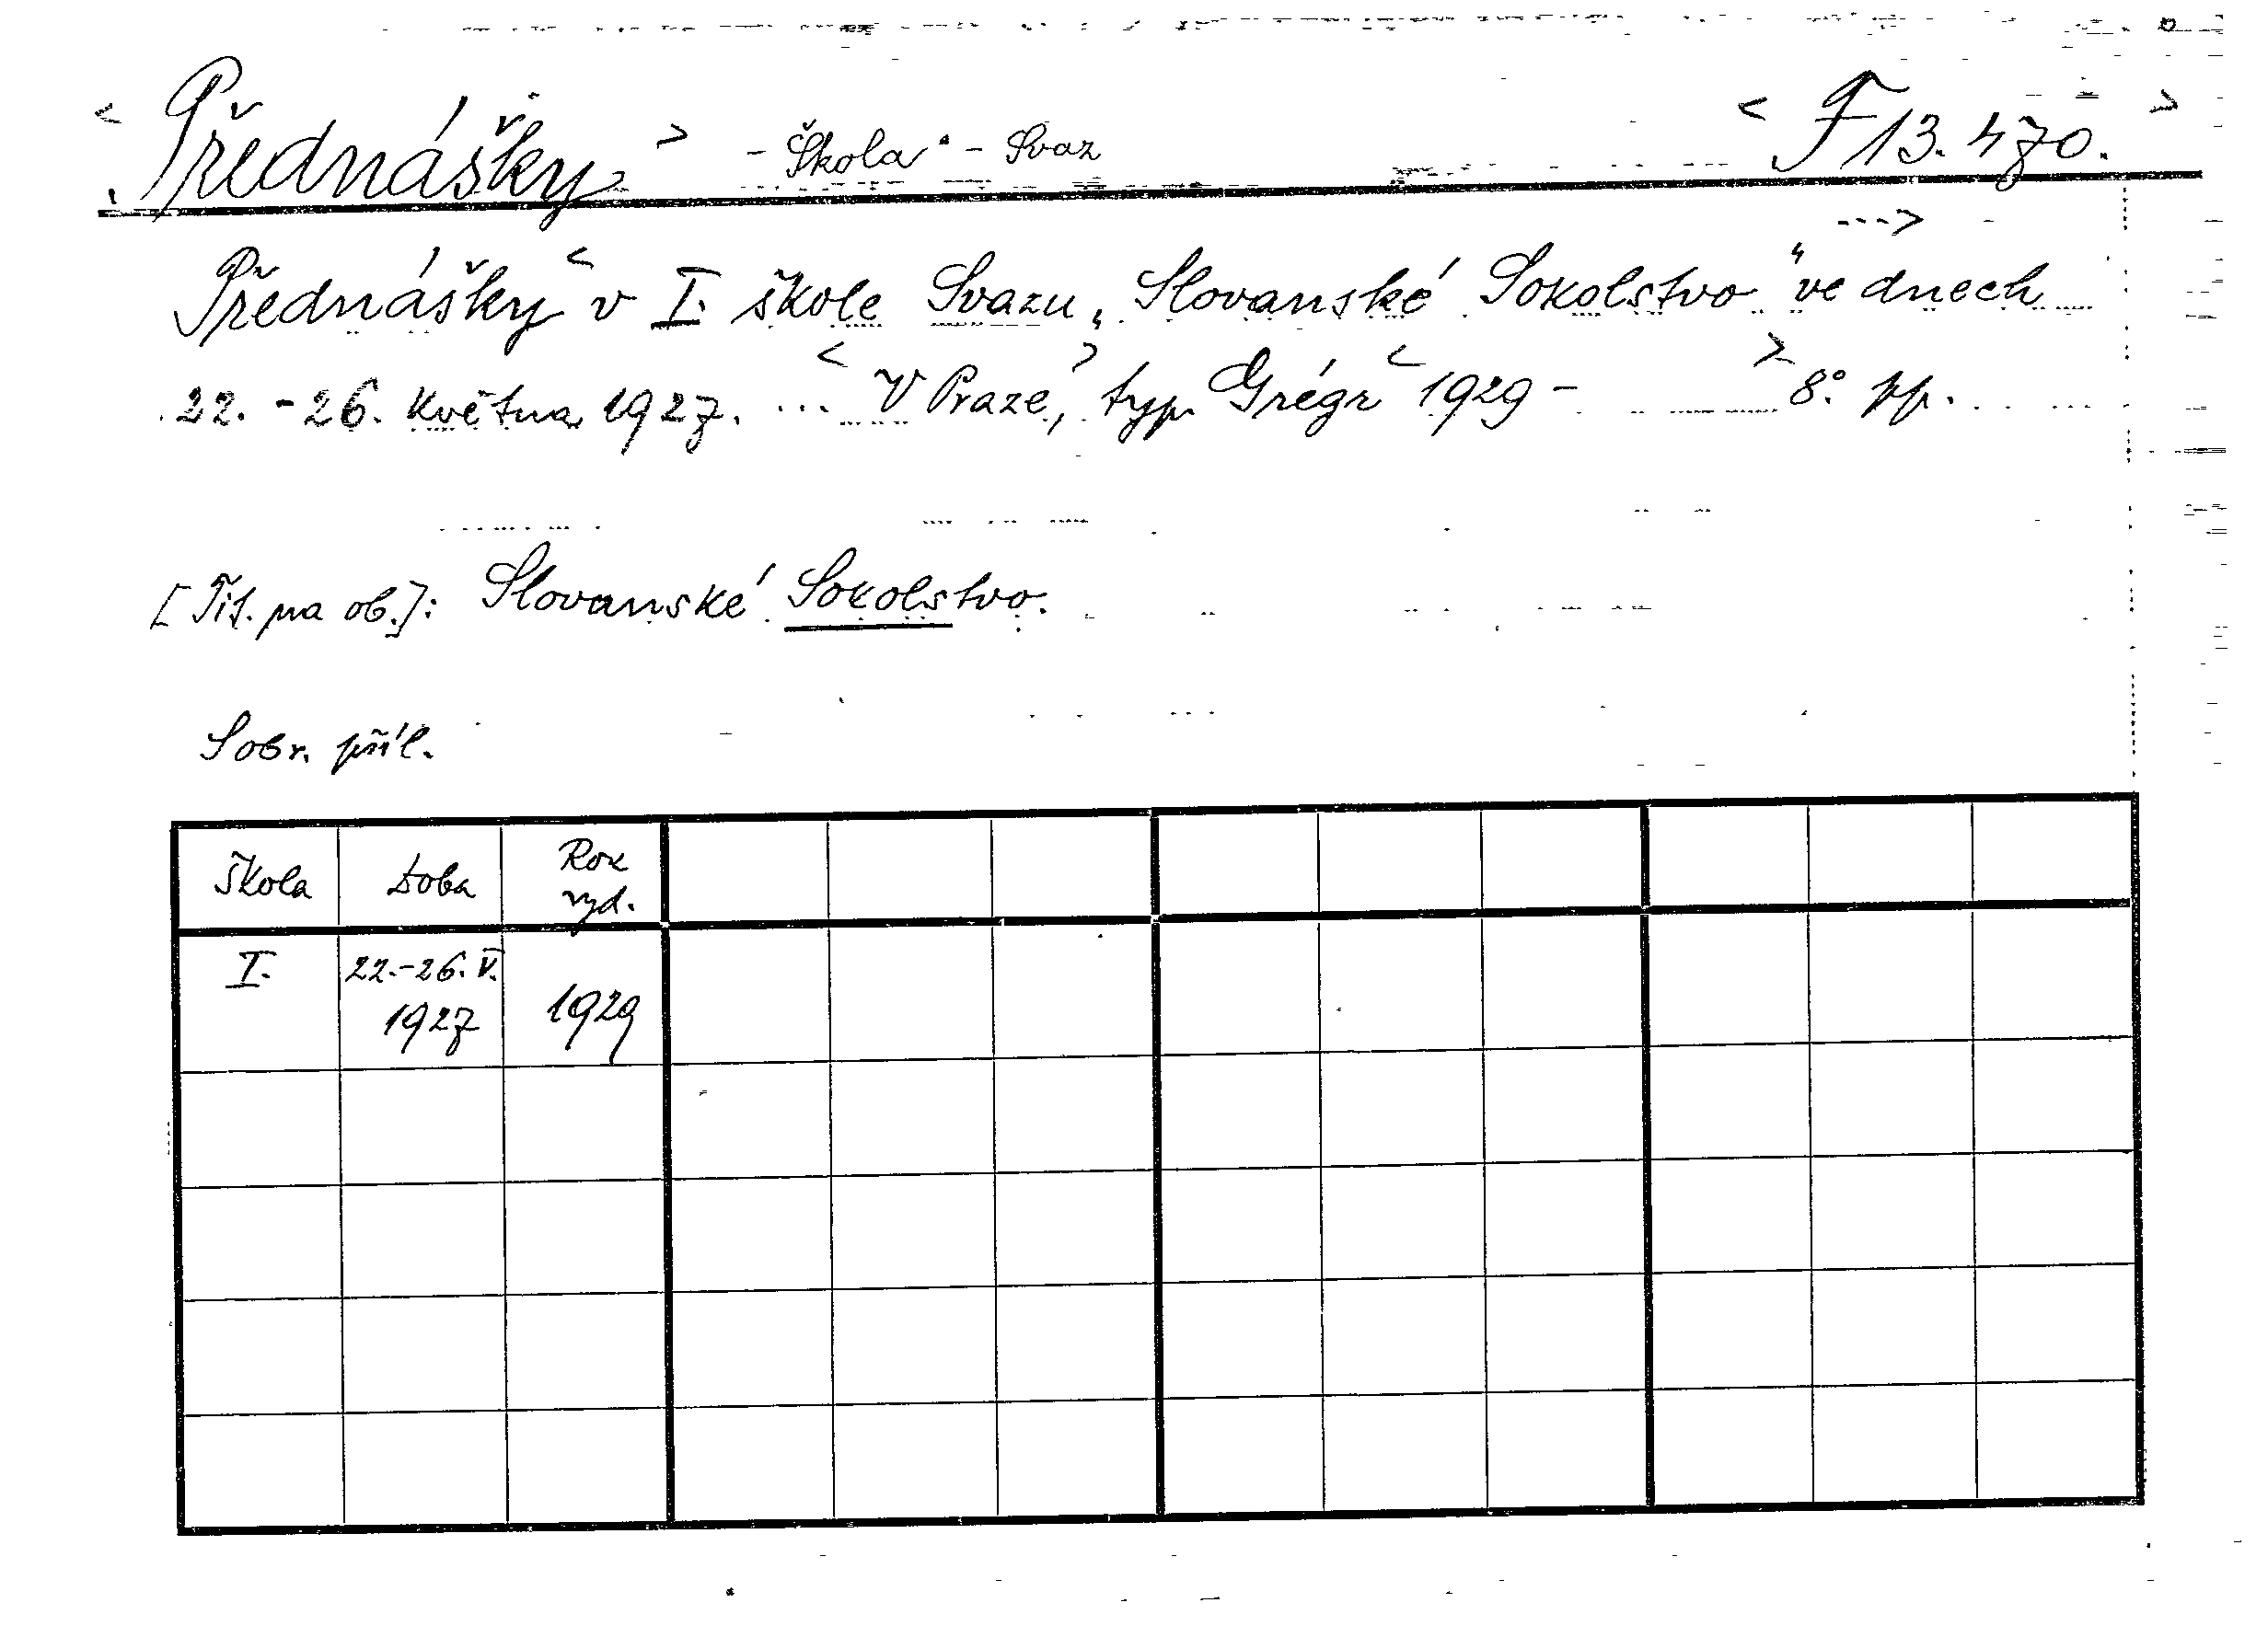 < Přednášky > - Škola - Svaz < F 13.470. >
--->
Přednášky < v I. škole Svazu „Slovanské Sokolstvo“ ve dnech
22. - 26. května 1927. ... < V Praze, > typ. Grégr < 1929 - > 8°. pp.
[Tit. na ob.]: Slovanské Sokolstvo.
Sobr. příl.
Škola Doba Rok vyd.
I. 22.-26. V. 1927 1929